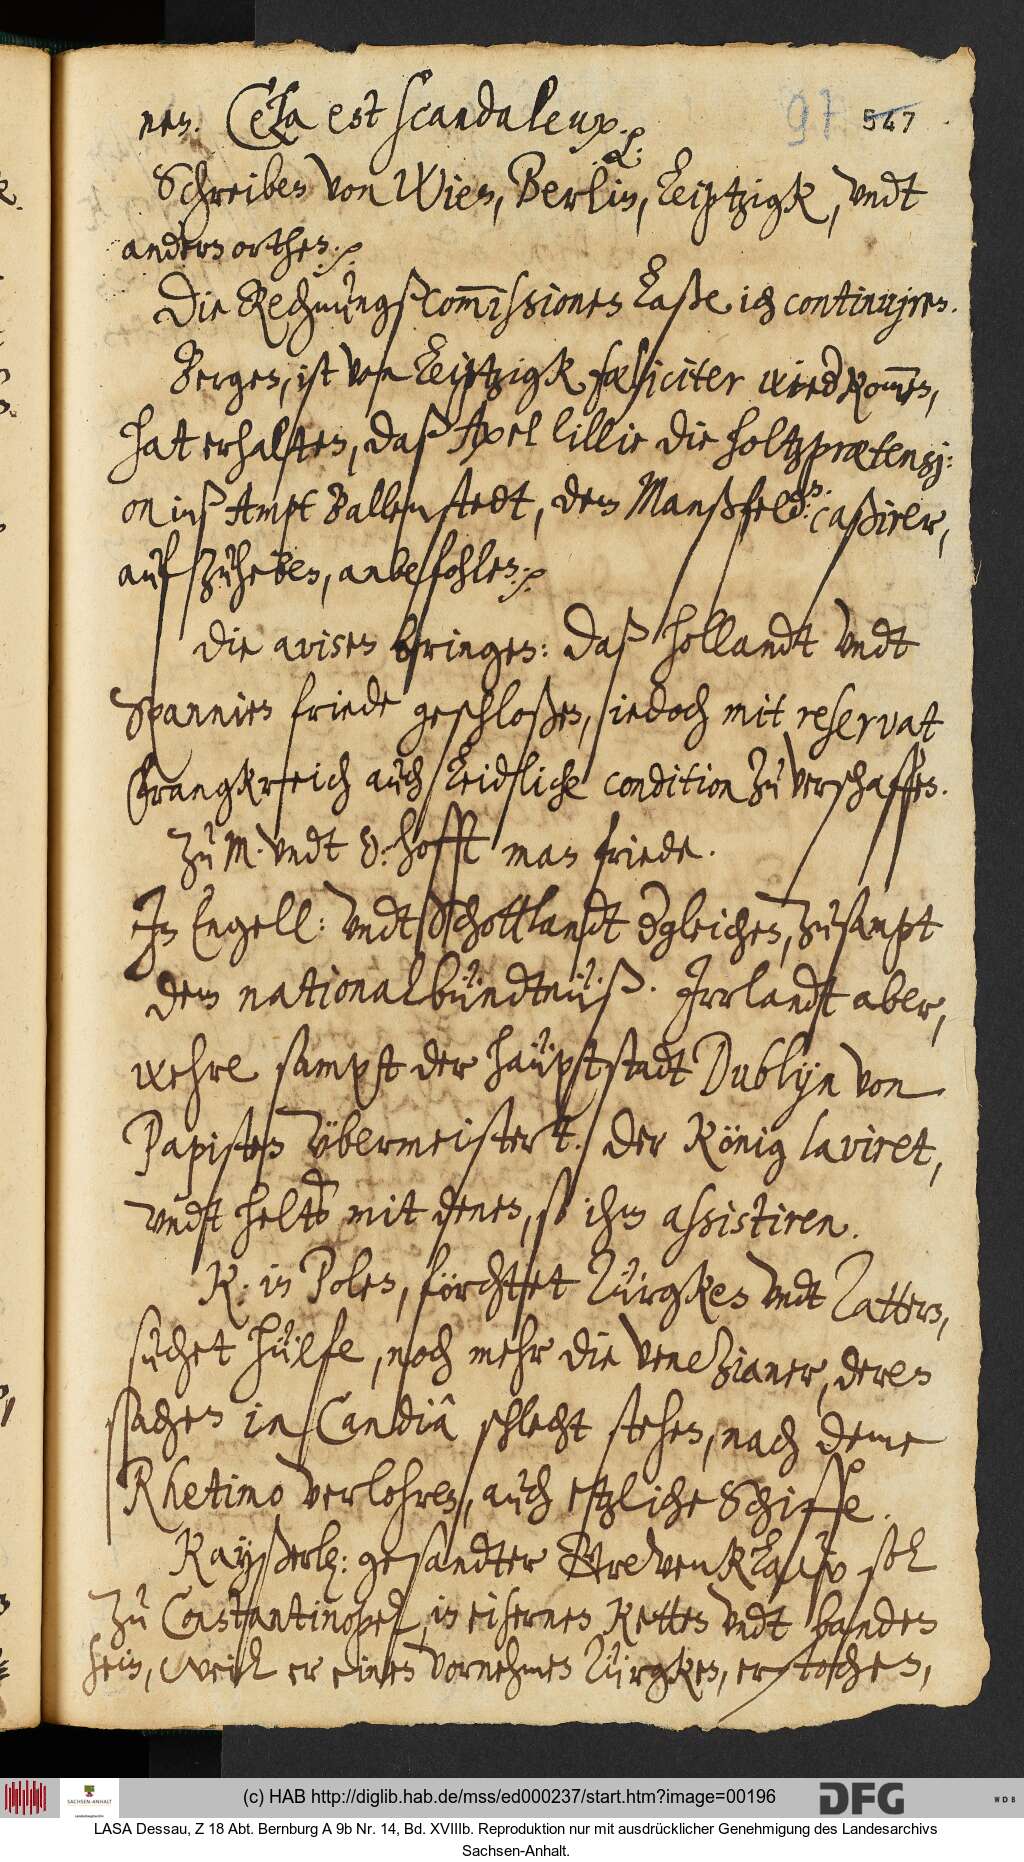 97 547
nen. Cela est scandaleux. /.
Schreiben von Wien, Berlin, Leiptzigk, vndt
andern orthen. /.
Die Rechnungßcom̅issionen laße ich continuiren.
Bergen, ist von Leiptzigk foeliciter wied kom̅en,
hat erhalten, daß Axel lillie die holtzprætensi=
on inß Ampt Ballenstedt, dem Manßfeld:n caßirer,
aufzuheben, anbefohlen. /.
Die avisen bringen: Daß Hollandt vndt
Spannien friede geschloßen, iedoch mit reservat
Frangkreich auch leidliche condition zu verschaffen.
Zu M. vndt O: hofft man friede.
In Engell: vndt Schottlandt dgleichen, zusampt
dem nationalbündtnüß. Irrlandt aber,
wehre sampt der häuptstadt Dublijn von
Papisten übermeistert. Der König laviret,
vndt helts mit denen, so ihm assistiren.
K. in Polen, förchtet Türgken vndt Tattern,
suchet hülfe, noch mehr die Venezianer, deren
sachen in Candiâ schlecht stehen, nach deme
Rhetimo verlohren, auch etzliche Schiffe.
Kayßerl: gesandter soll
zu Constantinopel, in eisernen Ketten vndt banden
sein, weil er einen vornehmen Türgken, erstochen,
(c) HAB http://diglib.hab.de/mss/ed000237/start.htm?image=00196
SACHSEN-ANHALT
DFG
WDB
LASA Dessau, Z 18 Abt. Bernburg A 9b Nr. 14, Bd. XVIIIb. Reproduktion nur mit ausdrücklicher Genehmigung des Landesarchivs
Sachsen-Anhalt.